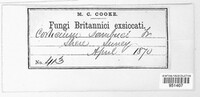 M. C. COOKE.
Fungi Britannici exsiccati.
Corticium sambuci Fr
Shere Surrey
April 1870
No. 413